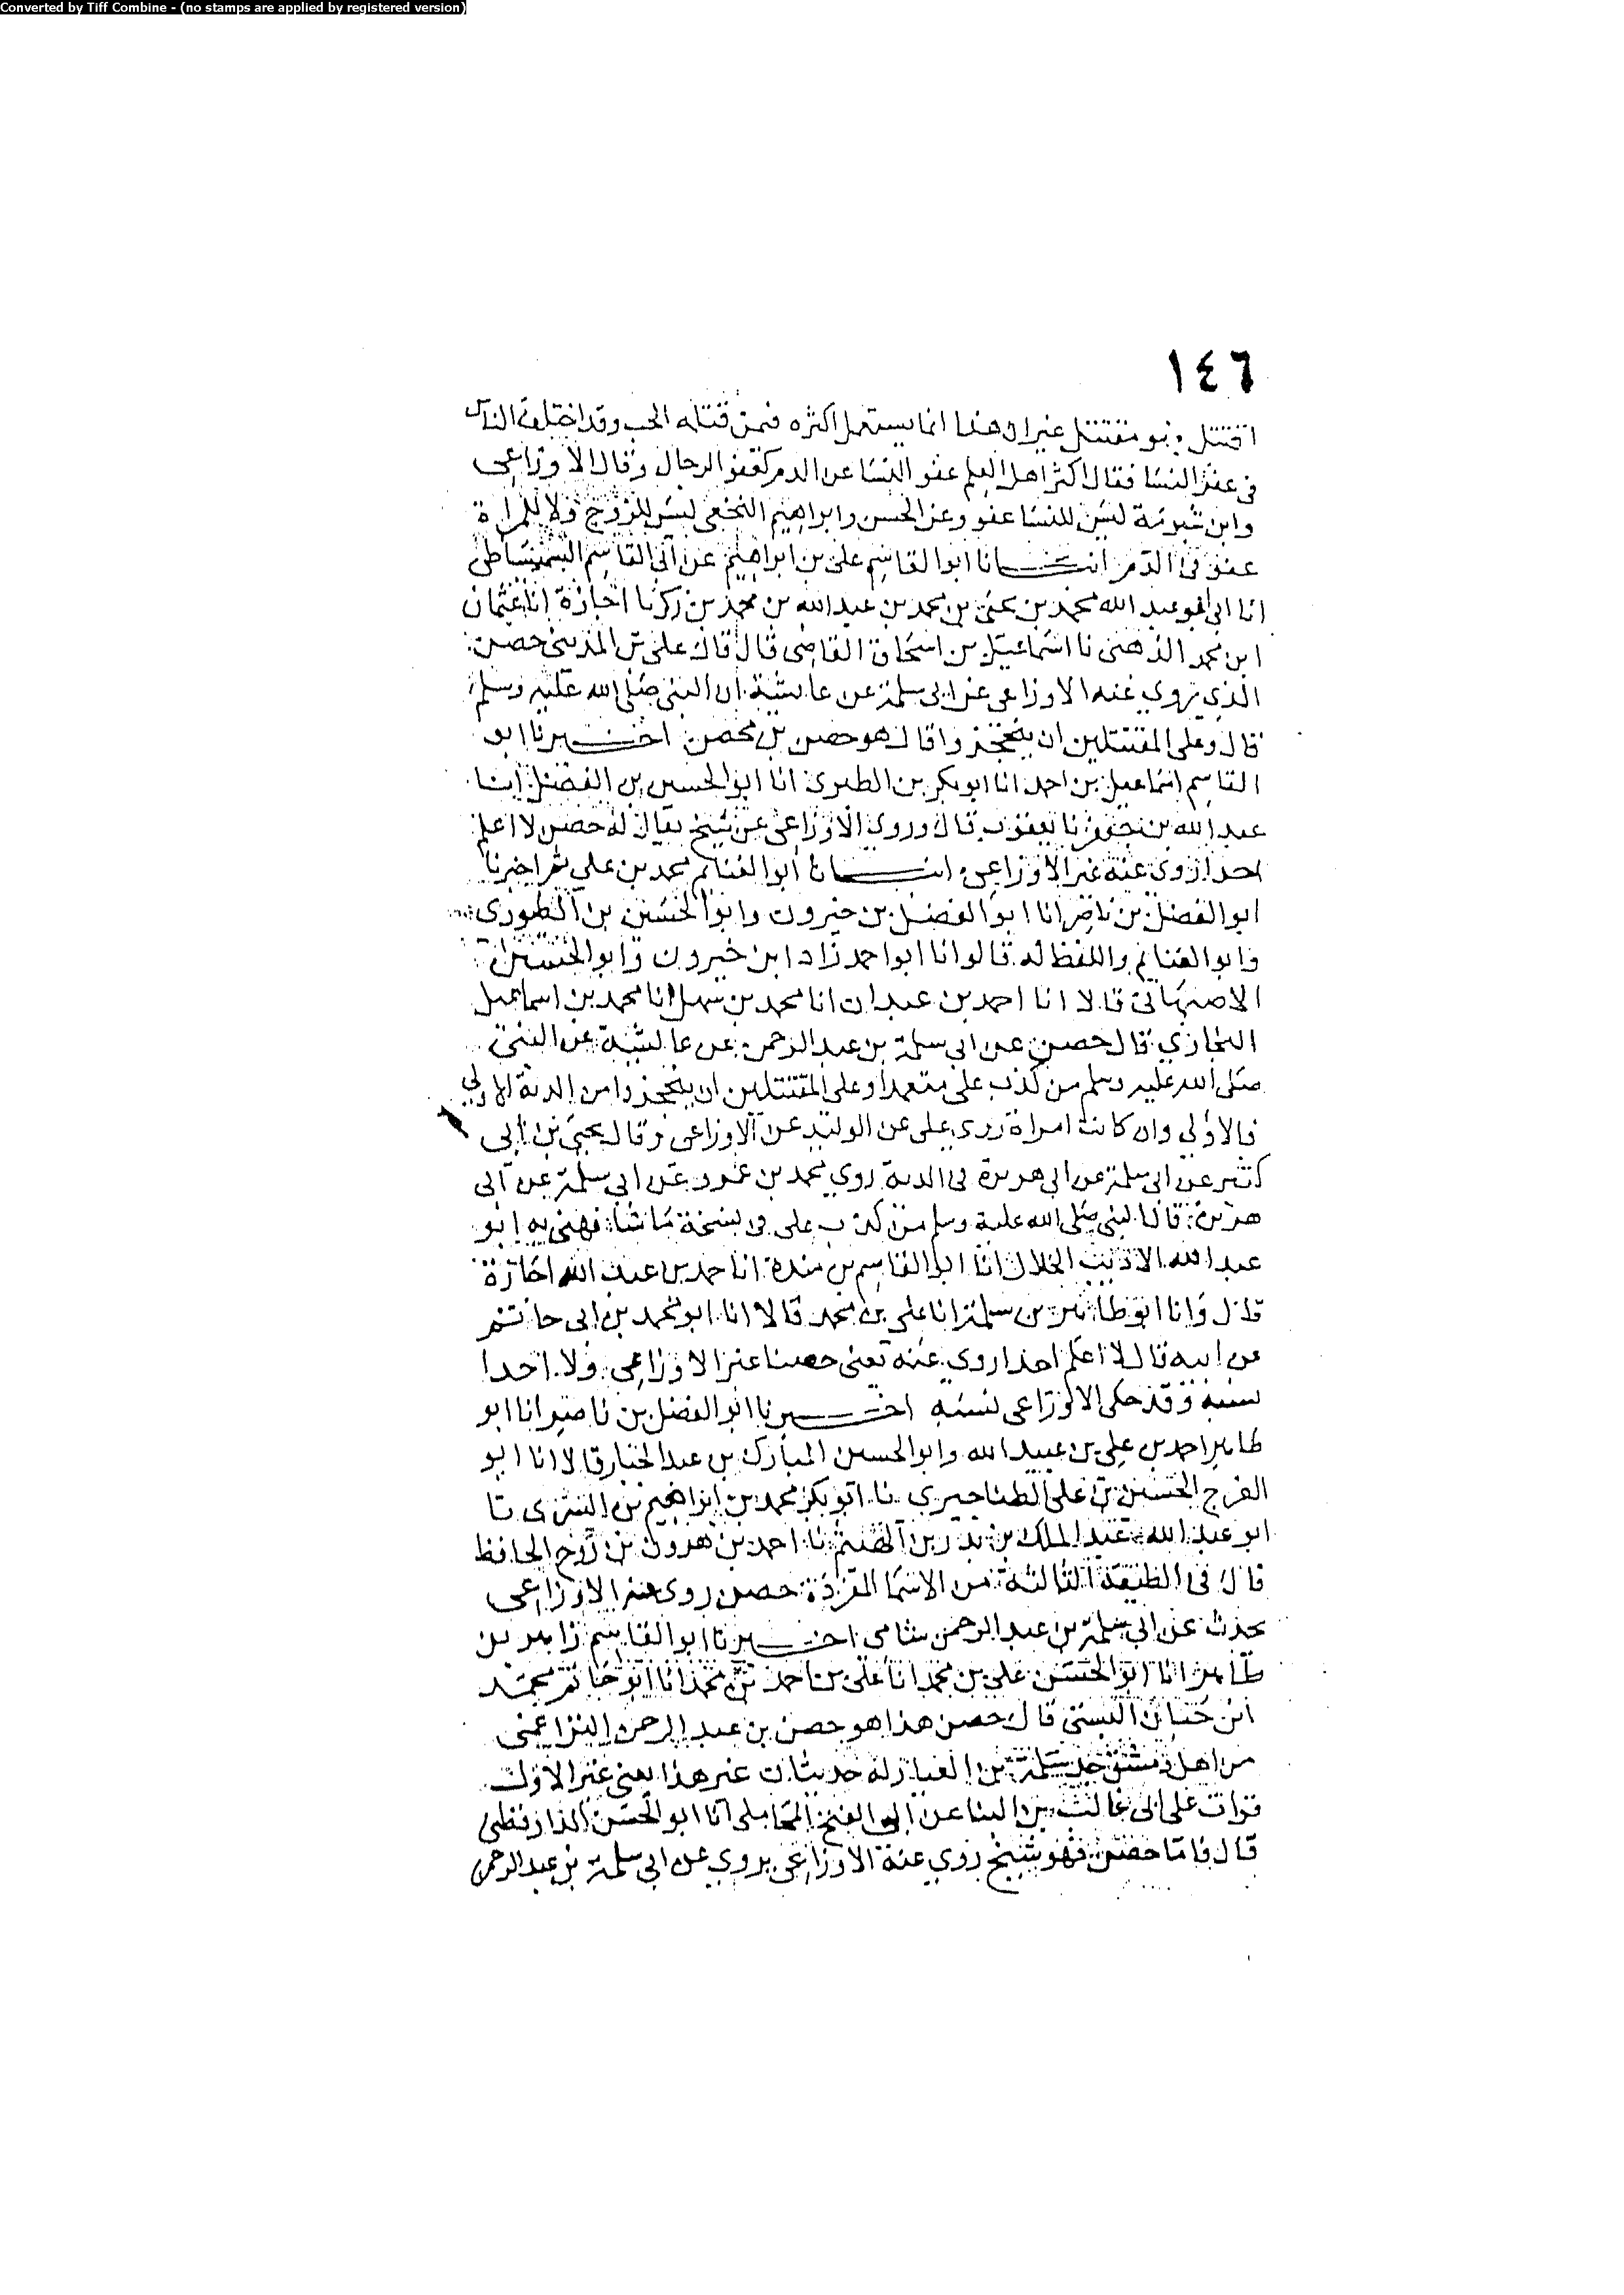 Converted by Tiff Combine - (no stamps are applied by registered version)
١٤٦
اقتتل فهو مقتتل غير ان هذا انما يستعمل اكثره فيمن قتله الحب وقد اختلف الناس
فى عفو النسا فقال اكثر اهل العلم عفو النسا عن الدم كعفو الرجال وقال الاوزاعى
وابن شبرمة ليس للنسا عفو وعن الحسن وابراهيم النخعى ليس للزوج ولا للمراة
عفو فى الدم انبانا ابو القاسم على بن ابراهيم عن ابى القاسم السميساطى
انا ابى ابو عبد الله محمد بن يحيى بن محمد بن عبد الله بن محمد بن زكريا اجازة انا عثمان
ابن محمد الذهبى نا اسماعيل بن اسحاق القاضى قال قال على بن المدينى حصن
الذي يروي عنه الاوزاعى عن ابى سلمة عن عايشة ان النبى صلى الله عليه وسلم
قال وعلى المقتتلين ان ينحجزوا قال هو حصن بن محصن اخبرنا ابو
القاسم اسماعيل بن احمد انا ابو بكر بن الطبرى انا ابو الحسين بن الفضل انا
عبد الله بن جعفر نا يعقوب قال وروى الاوزاعى عن شيخ يقال له حصن لا اعلم
احدا روى عنه غير الاوزاعى انبانا ابو الغنايم محمد بن علي ثم اخبرنا
ابو الفضل بن ناصر انا ابو الفضل بن خيرون وابو الحسين بن الطيورى
وابو الغنايم واللفظ له قالوا انا ابو احمد زاد ابن خيرون وابو الحسين
الاصبهانى قالا انا احمد بن عبدان انا محمد بن سهل انا محمد بن اسماعيل
البخاري قال حصن عن ابى سلمة بن عبد الرحمن عن عايشة عن النبى
صلى الله عليه وسلم من كذب على متعمدا وعلى المقتتلين ان ينحجزوا من الدية الاولي
فالاولي وان كانت امراة روى على عن الوليد عن الاوزاعى وقال يحيى بن ابى
كثير عن ابى سلمة عن ابى هريرة فى الدية روي محمد بن عمرو عن ابى سلمة عن ابى
هريرة قال النبى صلى الله عليه وسلم من كذب على فى نسخة ما شافهنى به ابو
عبد الله الاديب الخلال انا ابو القاسم بن مندة انا حمد بن عبد الله اجازة
قال وانا ابو طاهر بن سلمة انا على بن محمد قالا انا ابو محمد بن ابى حاتم
عن ابيه قال لا اعلم احدا روى عنه يعنى حصنا غير الاوزاعى ولا احدا
نسبه وقد حكى الاوزاعى نسبه اخبرنا ابو الفضل بن ناصر انا ابو
طاهر احمد بن على بن عبيد الله وابو الحسين المبارك بن عبد الجبار قالا انا ابو
الفرج الحسين بن على الطناجيرى نا ابو بكر محمد بن ابراهيم بن السرى نا
ابو عبد الله عبد الملك بن بدر بن الهيثم نا احمد بن هرون بن روح الحافظ
قال فى الطبقة الثالثة من الاسما المفردة حصن روى عنه الاوزاعى
يحدث عن ابى سلمة بن عبد الرحمن شامى اخبرنا ابو القاسم زاهر بن
طاهر انا ابو الحسن على بن محمد انا على بن احمد بن محمد انا ابو حاتم محمد
ابن حبان البستى قال حصن هذا هو حصن بن عبد الرحمن التراغمى
من اهل دمشق جد سلمة بن العيار له حديثان غير هذا يعنى غير الاول
قرات على ابى غالب بن البنا عن ابى الفتح المحاملى انا ابو الحسن الدارقطنى
قال فاما حصن فهو شيخ روي عنه الاوزاعى يروي عن ابى سلمة بن عبد الرحمن